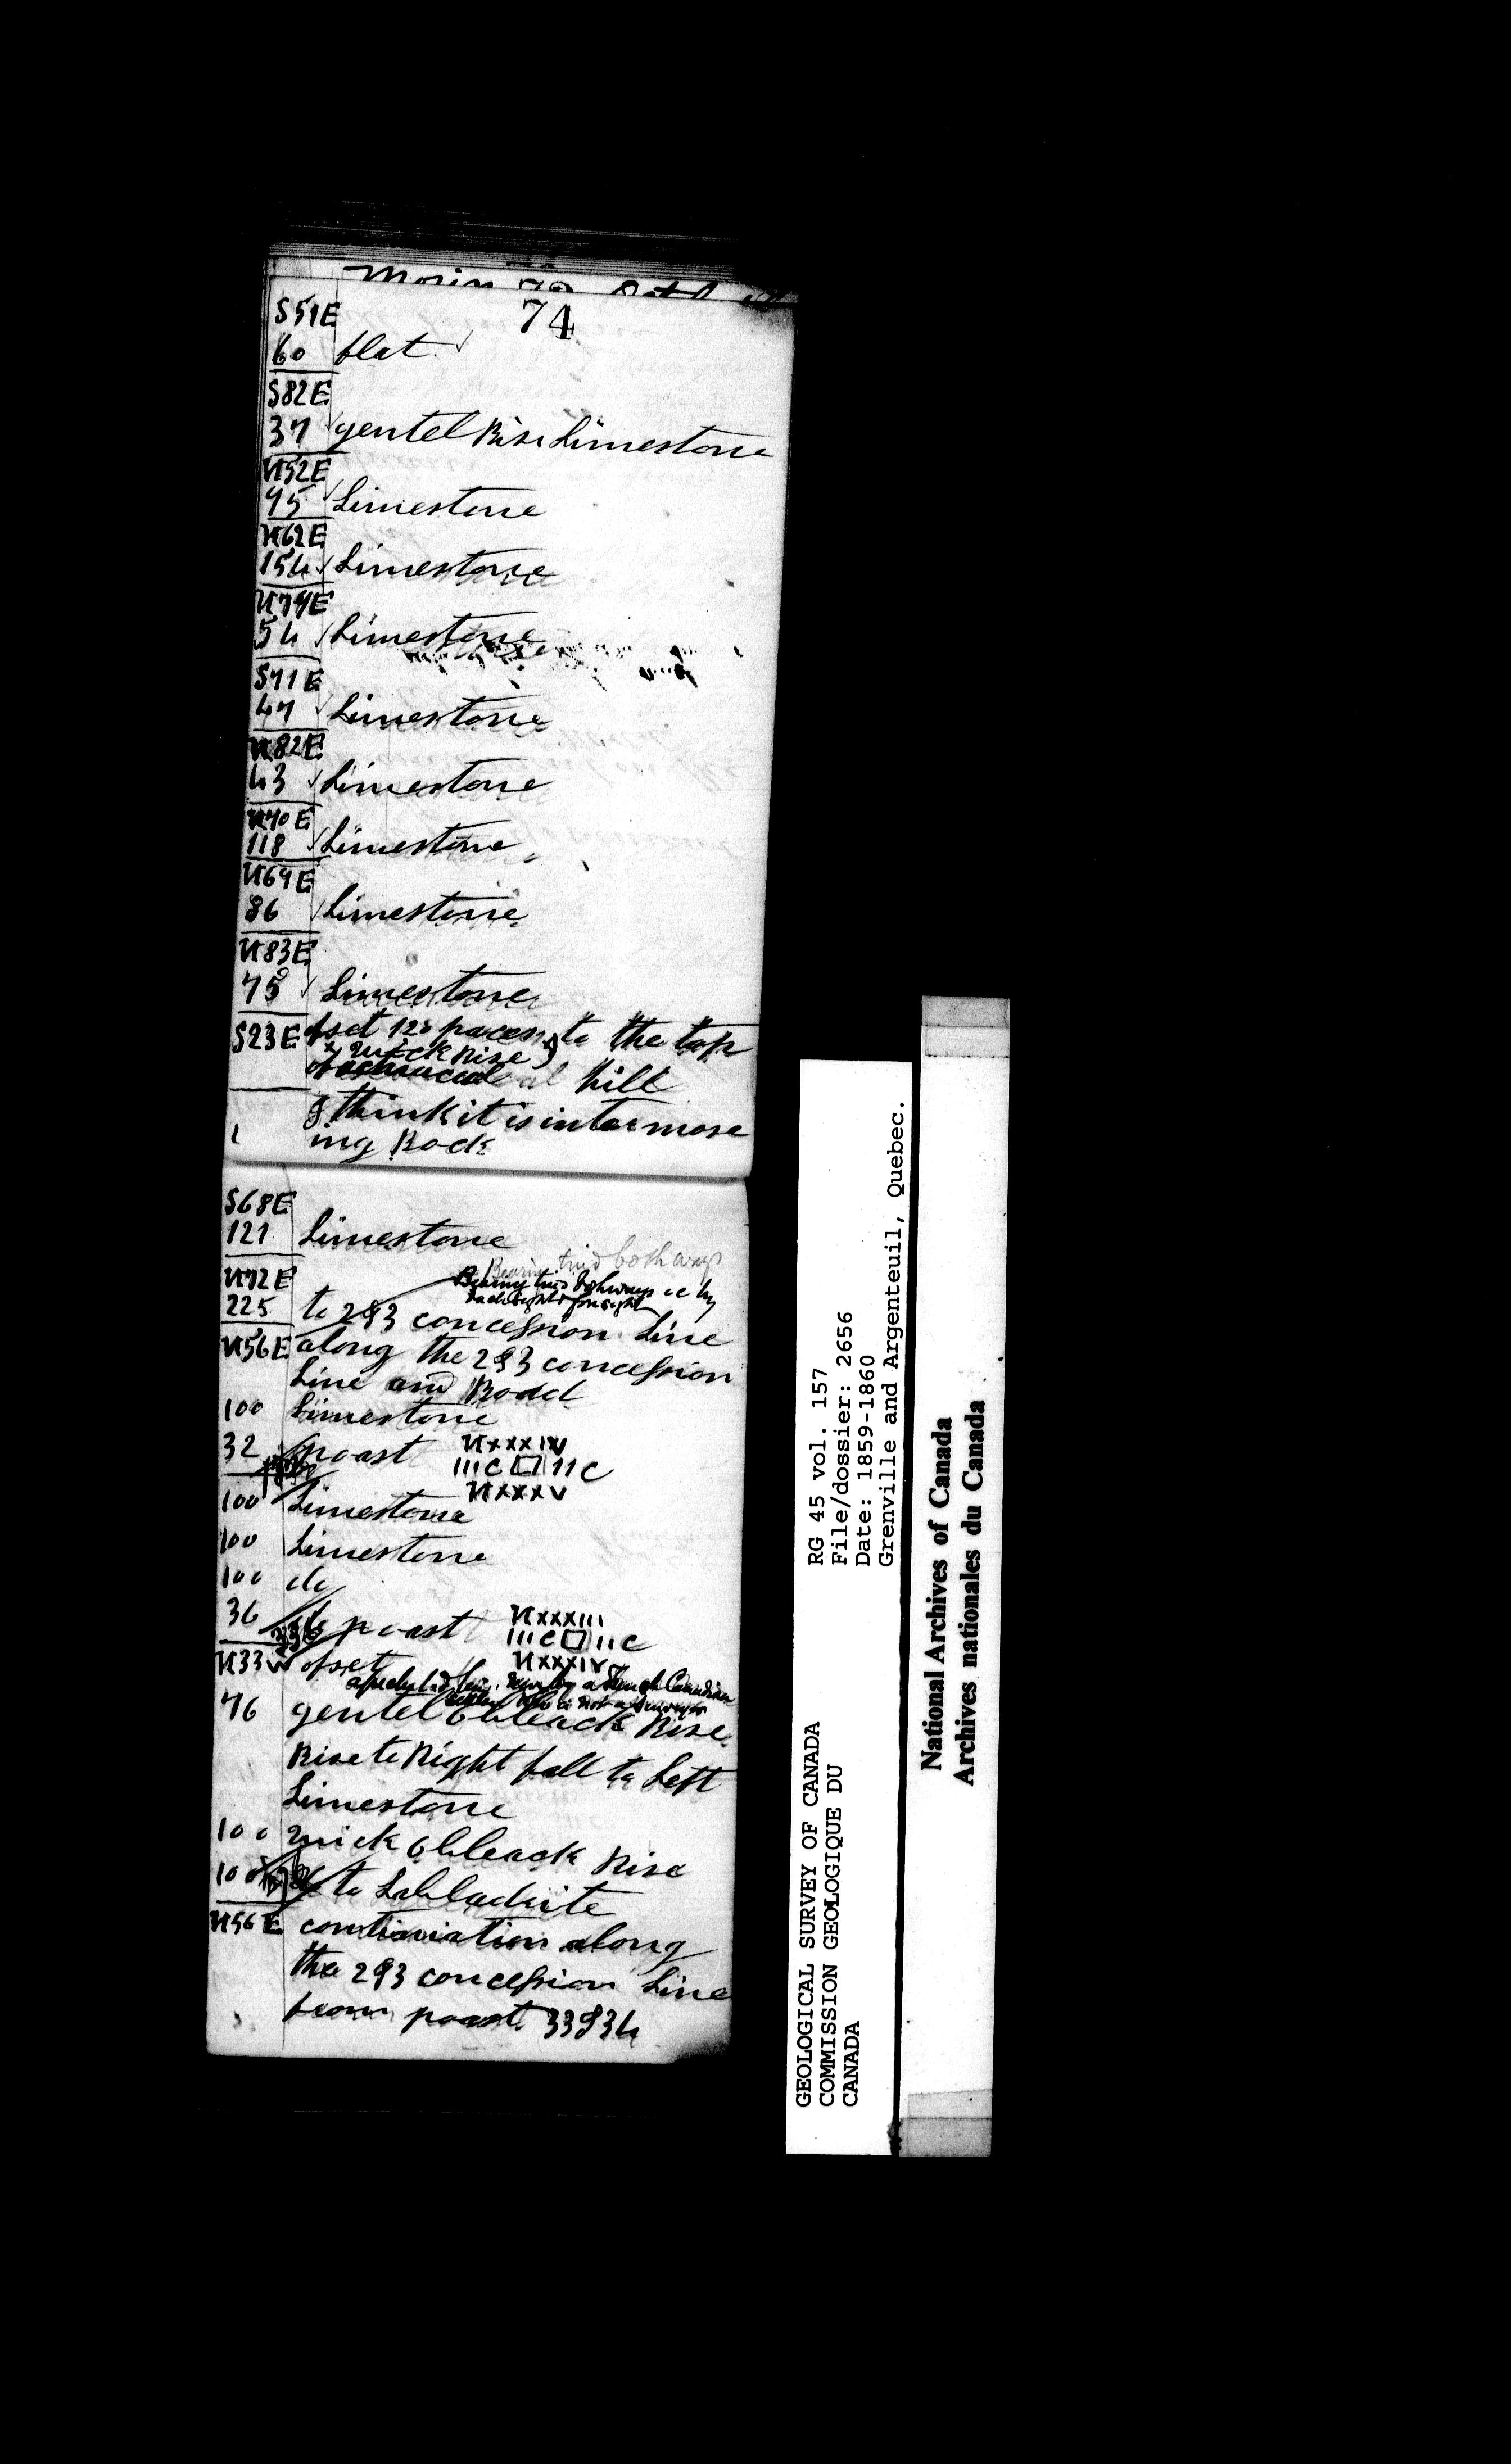 Morin
74
S51E
60 flat ✓
S82E
37 ✓ gentel Rise Limestone
N52E
75 ✓ Limestone
N62E
154 ✓ Limestone
N79E
54 ✓ Limestone
S71E
47 ✓ Limestone
N82E
43 ✓ Limestone
N70E
118 ✓ Limestone
N69E
86 ✓ Limestone
N83E
75 ✓ Limestone
S23E ofset 120 paces to the top
quick Rise
of hill
I think it is intermose
ing Rock
S68E
121 Limestone
Bearing tried both ways
N72E Bearing tried bothways
backsight & foresight
225 to 2&3 concession Line
N56E along the 2&3 concession
Line and Road
100 Limestone
32 poast NXXXIV
IIIC □ IIC
NXXXV
100 Limestone
100 Limestone
100 do
36 poast NXXXIII
IIIC □ IIC
NXXXIV
N33W ofset
by a French Canadian
who is not a surveyor
76 gentel obleack Rise
Rise to Right fall to Left
Limestone
100 quick obleack Rise
100 to Labladrite
N56E continiation along
the 2&3 concession Line
from poast 33&34
GEOLOGICAL SURVEY OF CANADA
COMMISSION GEOLOGIQUE DU
CANADA
RG 45 vol. 157
File/dossier: 2656
Date: 1859-1860
Grenville and Argenteuil, Quebec.
National Archives of Canada
Archives nationales du Canada